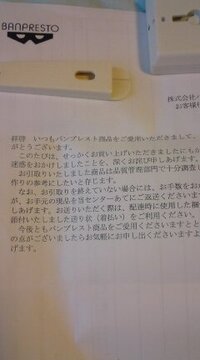 BANPRESTO
株式会社
お客様
拝啓　いつもバンプレスト商品をご愛用いただきまして、
がとうございます。
このたびは、せっかくお買い上げいただきましたにもか
迷惑をおかけしましたことを、深くお詫び申しあげます。
お引取りいたしました商品は品質管理部門で十分調査し
作りの参考にしたいと存じます。
なお、お引取りを終えていない場合には、お手数をお
が、お手元の現品を当センターあてにご返送くださいます
しあげます。お送りいただく際は、配達時に使用した梱
添付いたしました送り状（着払い）をご利用ください。
今後ともバンプレスト商品をご愛用くださいますとと
の点がございましたらお気軽にお申し出くださいますよ
げます。